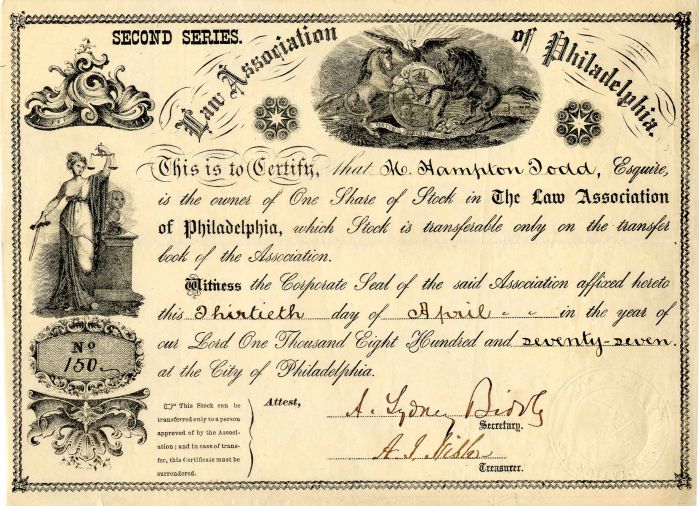 SECOND SERIES.
Law Association of Philadelphia.
This is to Certify, that H. Hampton Todd, Esquire,
is the owner of One Share of Stock in The Law Association
of Philadelphia, which Stock is transferable only on the transfer
book of the Association.
Witness the Corporate Seal of the said Association affixed hereto
this Thirtieth day of April - - in the year of
our Lord One Thousand Eight Hundred and seventy-seven.
at the City of Philadelphia.
No
150.
This Stock can be
transferred only to a person
approved of by the Associ-
ation; and in case of trans-
fer, this Certificate must be
surrendered.
Attest,
A. Sydney Biddle
Secretary.
A. I.
Treasurer.